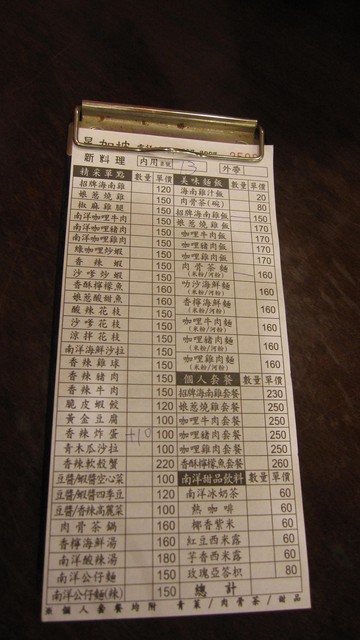 星加坡
新料理 內用 桌號 13 外帶
精采單點 數量 單價
招牌海南雞 120
娘惹燒雞 150
椒麻雞腿 150
南洋咖哩牛肉 150
南洋咖哩豬肉 150
南洋咖哩雞肉 150
綠咖哩炒蝦 150
香辣蝦 150
沙嗲炒蝦 150
香酥檸檬魚 160
娘惹酸甜魚 160
酸辣花枝 150
沙嗲花枝 150
涼拌花枝 150
南洋海鮮沙拉 150
香辣雞球 150
香辣豬肉 150
香辣牛肉 150
脆皮蝦餃 120
黃金豆腐 100
香辣炸蛋 +10 100
青木瓜沙拉 100
香辣軟殼蟹 220
豆醬/蝦醬空心菜 100
豆醬/蝦醬四季豆 120
豆醬/香辣高麗菜 100
肉骨茶鍋 160
香檸海鮮湯 160
南洋酸辣湯 180
南洋公仔麵 150
南洋公仔麵(辣) 150
美味麵飯 數量 單價
海南雞汁飯 20
肉骨茶(碗) 80
招牌海南雞飯 150
娘惹燒雞飯 150
咖哩牛肉飯 170
咖哩豬肉飯 170
咖哩雞肉飯 170
肉骨茶麵 (米粉/河粉) 160
叻沙海鮮麵 (米粉/河粉) 160
香檸海鮮麵 (米粉/河粉) 160
咖哩牛肉麵 (米粉/河粉) 160
咖哩豬肉麵 (米粉/河粉) 160
咖哩雞肉麵 (米粉/河粉) 160
個人套餐 數量 單價
招牌海南雞套餐 230
娘惹燒雞套餐 250
咖哩牛肉套餐 250
咖哩豬肉套餐 250
咖哩雞肉套餐 250
香酥檸檬魚套餐 260
南洋甜品飲料 數量 單價
南洋冰奶茶 60
熱咖啡 60
椰香紫米 60
紅豆西米露 60
芋香西米露 60
玫瑰亞荅枳 80
總計
※個人套餐均附 青菜/肉骨茶/甜品